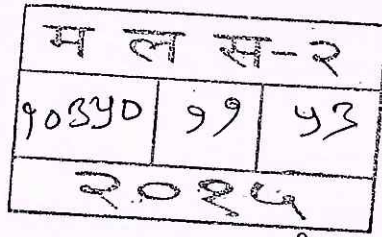 म ल स-२
१०३५० ११ ५३
२०१५